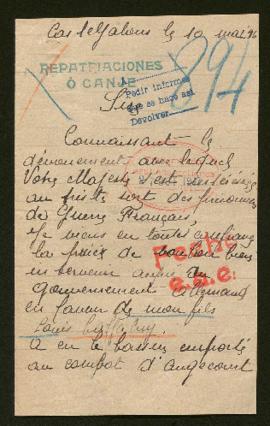 Casteljaloux le 10 mai 16
REPATRIACIONES
Ó CANJE
894
Pedir informes
que se hace así
Devolver
Sire
Connaissant le
dévouement avec lequel
Votre Majesté s'est intéressée
au triste sort des prisonniers
de Guerre Français,
Je viens en toute confiance
la prier de vouloir bien
intervenir auprès du
Gouvernement Allemand
en faveur de mon fils
Louis
a eu le bassin emporté
au combat d'Angecourt